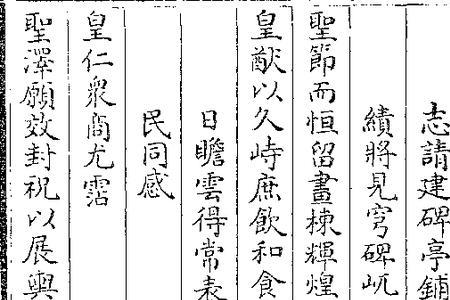 志請建碑亭鋪
績將見穹碑屼
聖節而恒留畫棟輝煌
皇猷以久峙庶飲和食
日瞻雲得常表
民同感
皇仁衆商尤霑
聖澤願效封祝以展輿